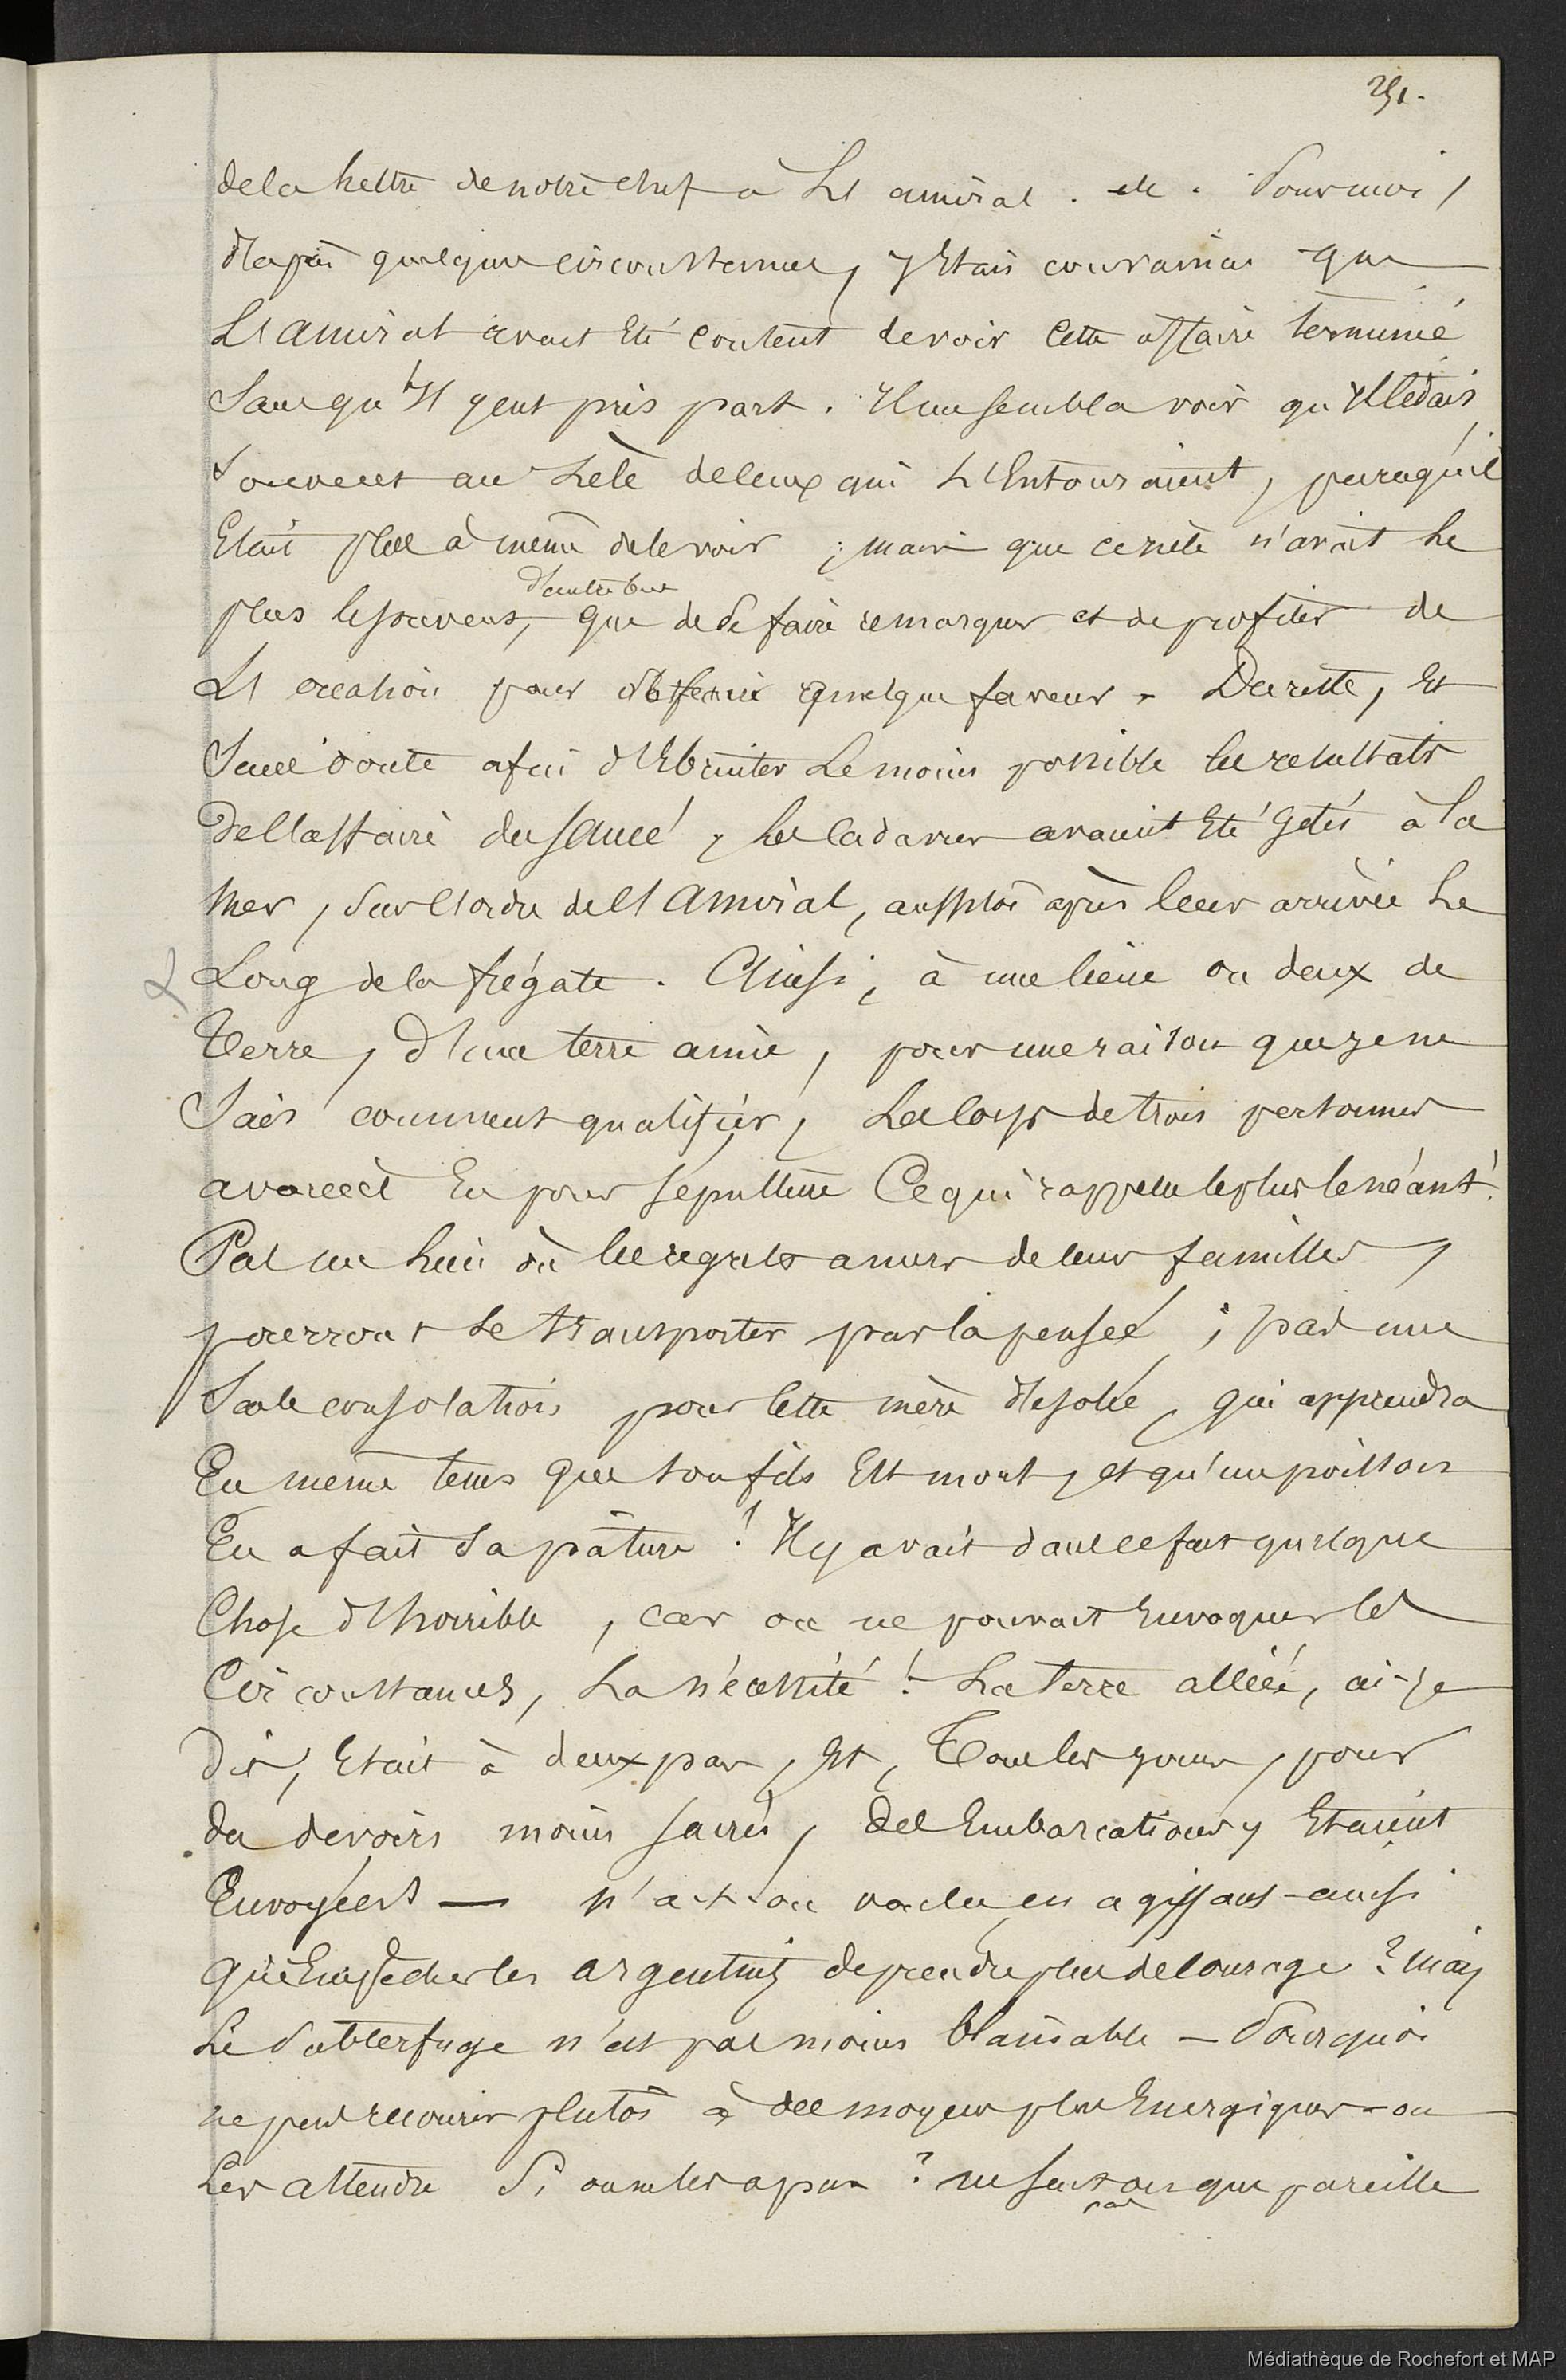 251.
de la lettre de notre chef à L'amiral . etc . Pour moi,
d'après quelques circonstances, J'Etais convaincu que
L'amiral avait Eté content de voir cette affaire terminé
Sans qu'Il y eut pris part . Il me sembla voir qu'Il cédait
Souvent au zèle de ceux qui L'Entouraient, parcequ'il
Etait plus à même de le voir ; mais que ce zèle n'avait le
plus souvent, d'autre but que de se faire remarquer et de profiter de
L'occasion pour obtenir quelque faveur . Du reste, Et
Sans doute afin d'Ebruiter Le moins possible les resultats
De l'affaire du Saucé, Les Cadavres avaient Eté getés à la
Mer, Sur l'ordre de l'Amiral, aussitôt après leur arrivée Le
Long de la frégate . Ainsi, à une lieue ou deux de
Terre, d'une terre amie, pour une raison que je ne
Sais comment qualifier, Les corps de trois personnes
avaient Eu pour sépulture Ce qui rappelle le plus le néant !
Pas un lieu où les regrets amers de leurs familles,
pourront se transporter par la pensée ; pas une
Seule consolation pour cette mère desolée, qui apprendra
En même tems que son fils Est mort, et qu'un poisson
En a fait sa pâture ! Il y avait dans ce fait quelque
Chose d'horrible, car on ne pouvait Invoquer les
Circonstances, La nécessité ! La terre alliée, ai-je
Dit, Etait à deux pas, Et, Tous les jours, pour
des devoirs moins sacrés, des Embarcations y Etaient
Envoyées — n'a-t-on voulu en agissant ainsi
qu'Empêcher les argentins de prendre plus de courage ? Mais
Le Subterfuge n'est pas moins blamable — Pourquoi
ne pas recourir plutôt à des moyens plus Energiques — ou
Les attendre Si on ne les a pas ? ne sait on pas que pareille
Médiathèque de Rochefort et MAP